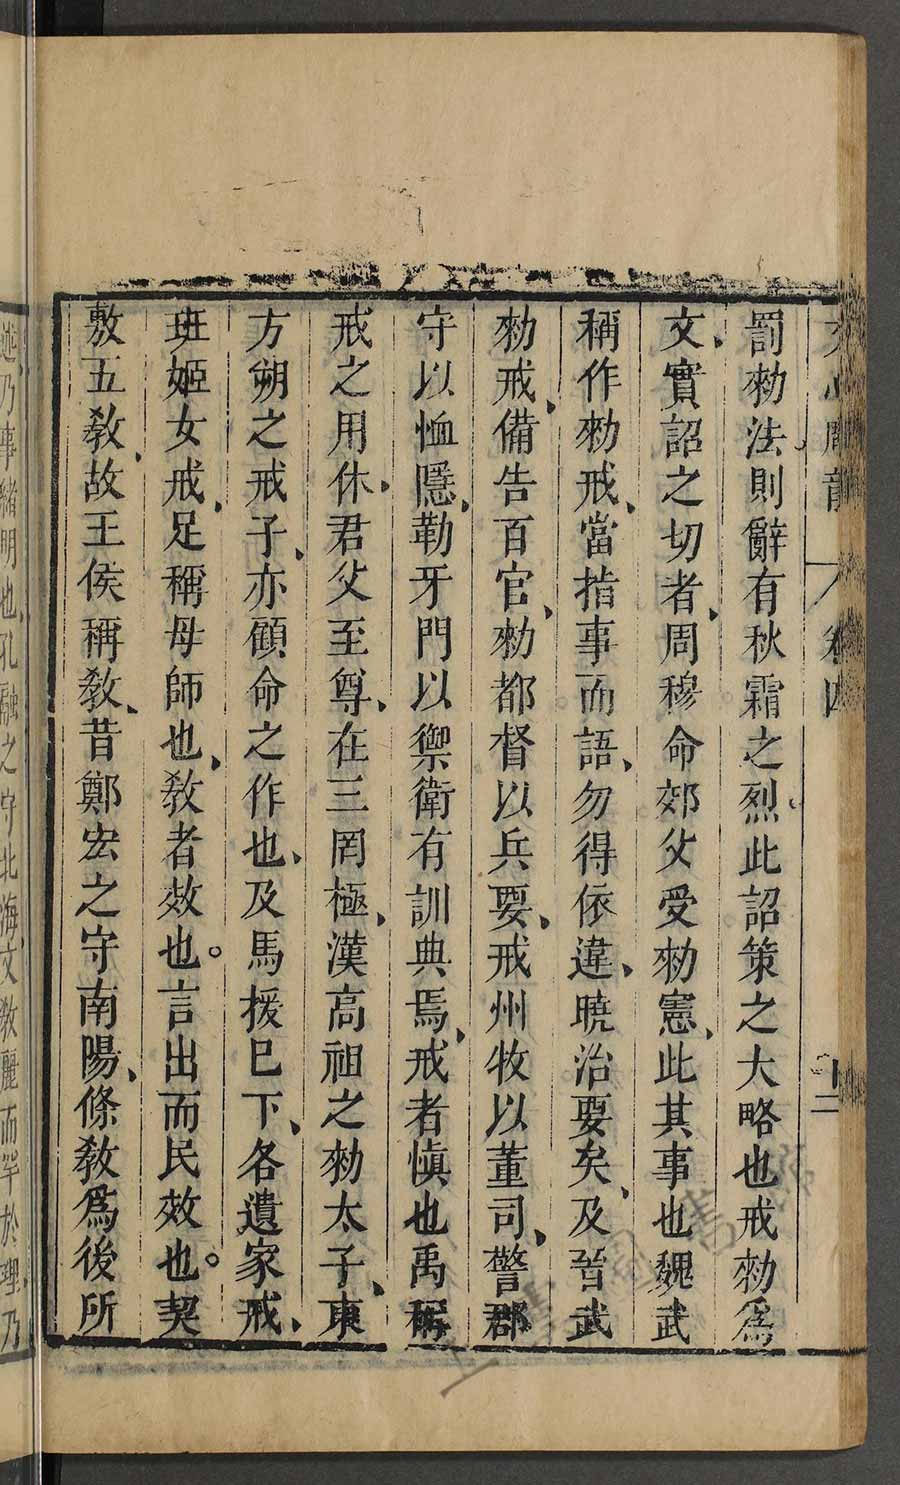 文心雕龍 卷四 十二
罰勑法則辭有秋霜之烈此詔策之大略也戒勑爲
文實詔之切者周穆命郊父受勑憲此其事也魏武
稱作勑戒當指事而語勿得依違曉治要矣及晉武
勑戒備告百官勑都督以兵要戒州牧以董司警郡
守以恤隱勒牙門以禦衛有訓典焉戒者愼也禹稱
戒之用休君父至尊在三罔極漢高祖之勑太子東
方朔之戒子亦顧命之作也及馬援已下各遺家戒
班姬女戒足稱母師也敎者效也。言出而民效也。契
敷五敎故王侯稱敎昔鄭宏之守南陽條敎爲後所
述乃事緒明也孔融之守北海文敎麗而罕於理乃